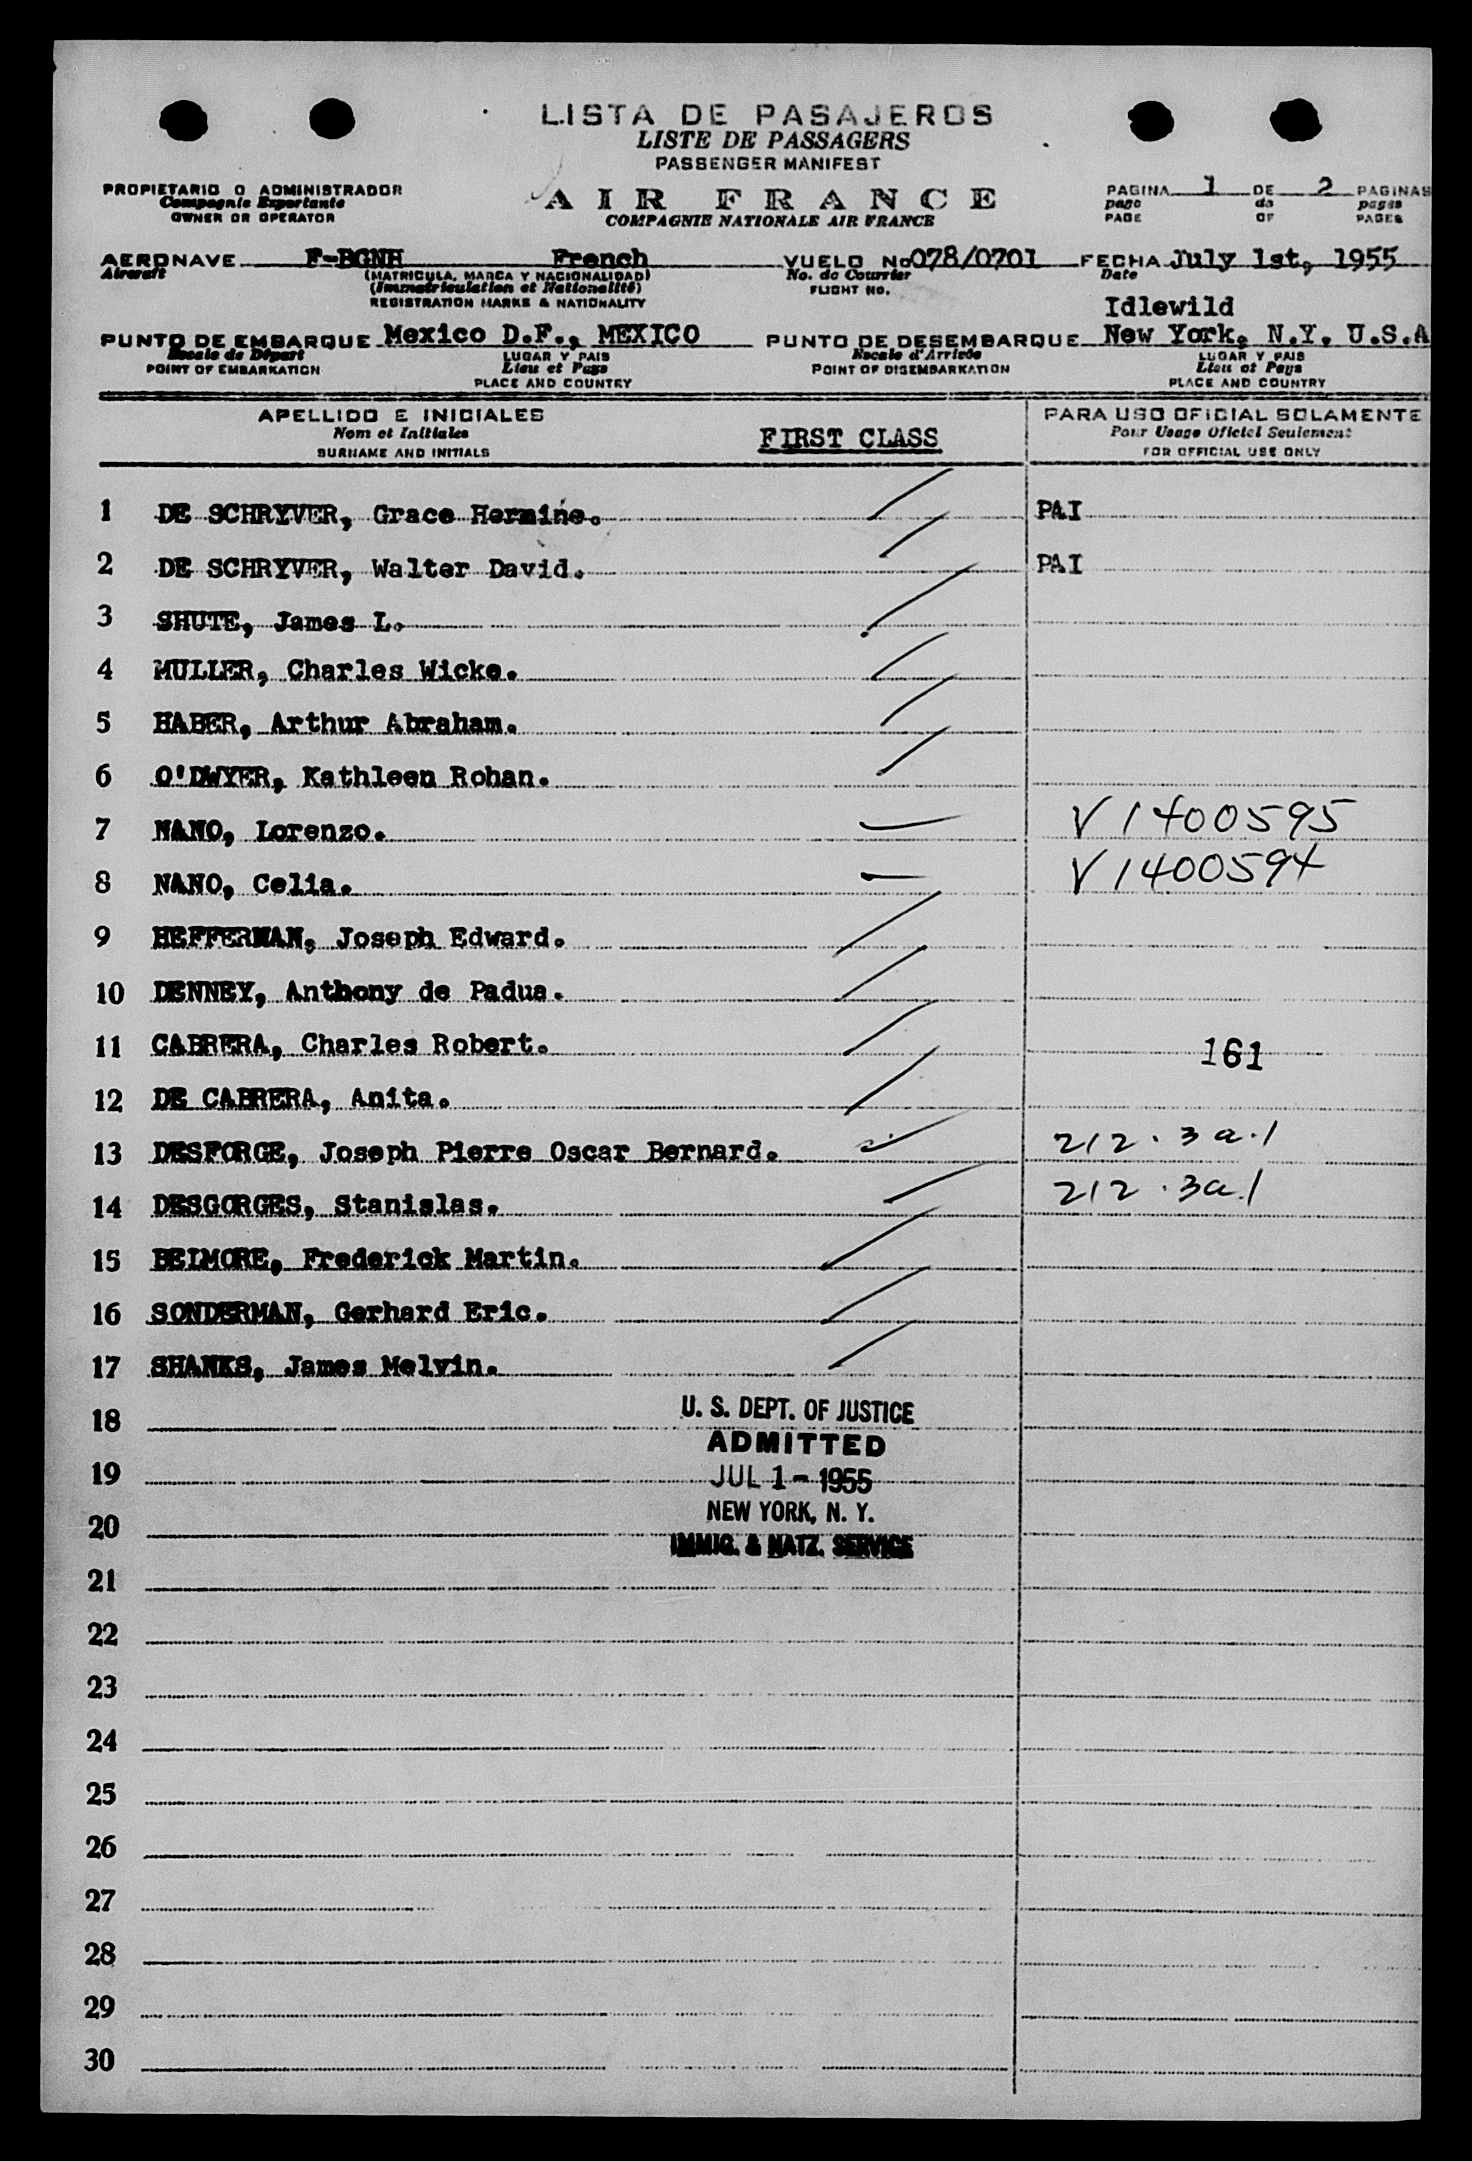 LISTA DE PASAJEROS
LISTE DE PASSAGERS
PASSENGER MANIFEST
PROPIETARIO O ADMINISTRADOR
Compagnie Exportante
OWNER OR OPERATOR
AIR FRANCE
COMPAGNIE NATIONALE AIR FRANCE
PAGINA 1 DE 2 PAGINAS
page de pages
PAGE OF PAGES
AERONAVE F-BGNH French VUELO No 078/0701 FECHA July 1st, 1955
Aircraft (MATRICULA, MARCA Y NACIONALIDAD) No. de Courrier Date
(Immatriculation et Nationalité) FLIGHT NO.
REGISTRATION MARKS & NATIONALITY
Idlewild
PUNTO DE EMBARQUE Mexico D.F., MEXICO PUNTO DE DESEMBARQUE New York, N.Y. U.S.A
Escale de Départ LUGAR Y PAIS Escale d'Arrivée LUGAR Y PAIS
POINT OF EMBARKATION Lieu et Pays POINT OF DISEMBARKATION Lieu et Pays
PLACE AND COUNTRY PLACE AND COUNTRY
APELLIDO E INICIALES PARA USO OFICIAL SOLAMENTE
Nom et Initiales FIRST CLASS Pour Usage Officiel Seulement
SURNAME AND INITIALS FOR OFFICIAL USE ONLY
1 DE SCHRYVER, Grace Hermine. PAI
2 DE SCHRYVER, Walter David. PAI
3 SHUTE, James L.
4 MULLER, Charles Wicke.
5 HABER, Arthur Abraham.
6 O'DWYER, Kathleen Rohan.
7 NANO, Lorenzo. V 1400595
8 NANO, Celia. V 1400594
9 HEFFERNAN, Joseph Edward.
10 DENNEY, Anthony de Padua.
11 CABRERA, Charles Robert. 161
12 DE CABRERA, Anita.
13 DESFORGE, Joseph Pierre Oscar Bernard. 212.3a.1
14 DESGORGES, Stanislas. 212.3a.1
15 BEIMORE, Frederick Martin.
16 SONDERMAN, Gerhard Eric.
17 SHANKS, James Melvin.
18
U. S. DEPT. OF JUSTICE
ADMITTED
19
JUL 1 - 1955
NEW YORK, N. Y.
20
IMMIG. & NATZ. SERVICE
21
22
23
24
25
26
27
28
29
30